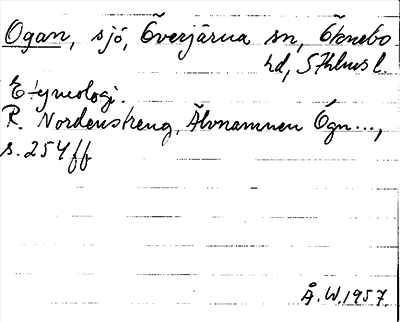 Ogan, sjö, Överjärna sn, Öknebo
hd, Sthlms l.
Etymologi.
R. Nordenstreng, Älvnamnen Ögn...,
s. 254 ff
Å. W. 1957.